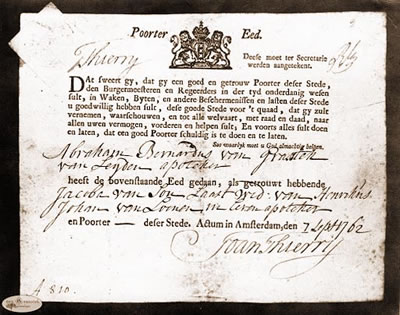 Poorter Eed.
Thierry
Deese moet ter Secretarie
werden aangetekent.
DAt sweert gy, dat gy een goed en getrouw Poorter deser Stede,
den Burgermeesteren en Regeerders in der tyd onderdanig wesen
sult, in Waken, Byten, en andere Beschermenissen en lasten deser Stede
u goedwillig hebben sult, dese goede Stede voor 't quaad, dat gy zult
vernemen, waarschouwen, en tot alle welvaart, met raad en daad, naar
allen uwen vermogen, vorderen en helpen sult, En voorts alles sult doen
en laten, dat een goed Poorter schuldig is te doen en te laten.
Soo waarlyk moet u God almachtig helpen.
Abraham Bernardus van
van Leyden apoteker
heeft de bovenstaande Eed gedaan, als getrouwt hebbende
Jacoba van Son Laast Wed van
Johan van Loenen in leven apoteker
en Poorter deser Stede. Actum in Amsterdam, den 7 Sept 1762
Joan Thierry
A 810.